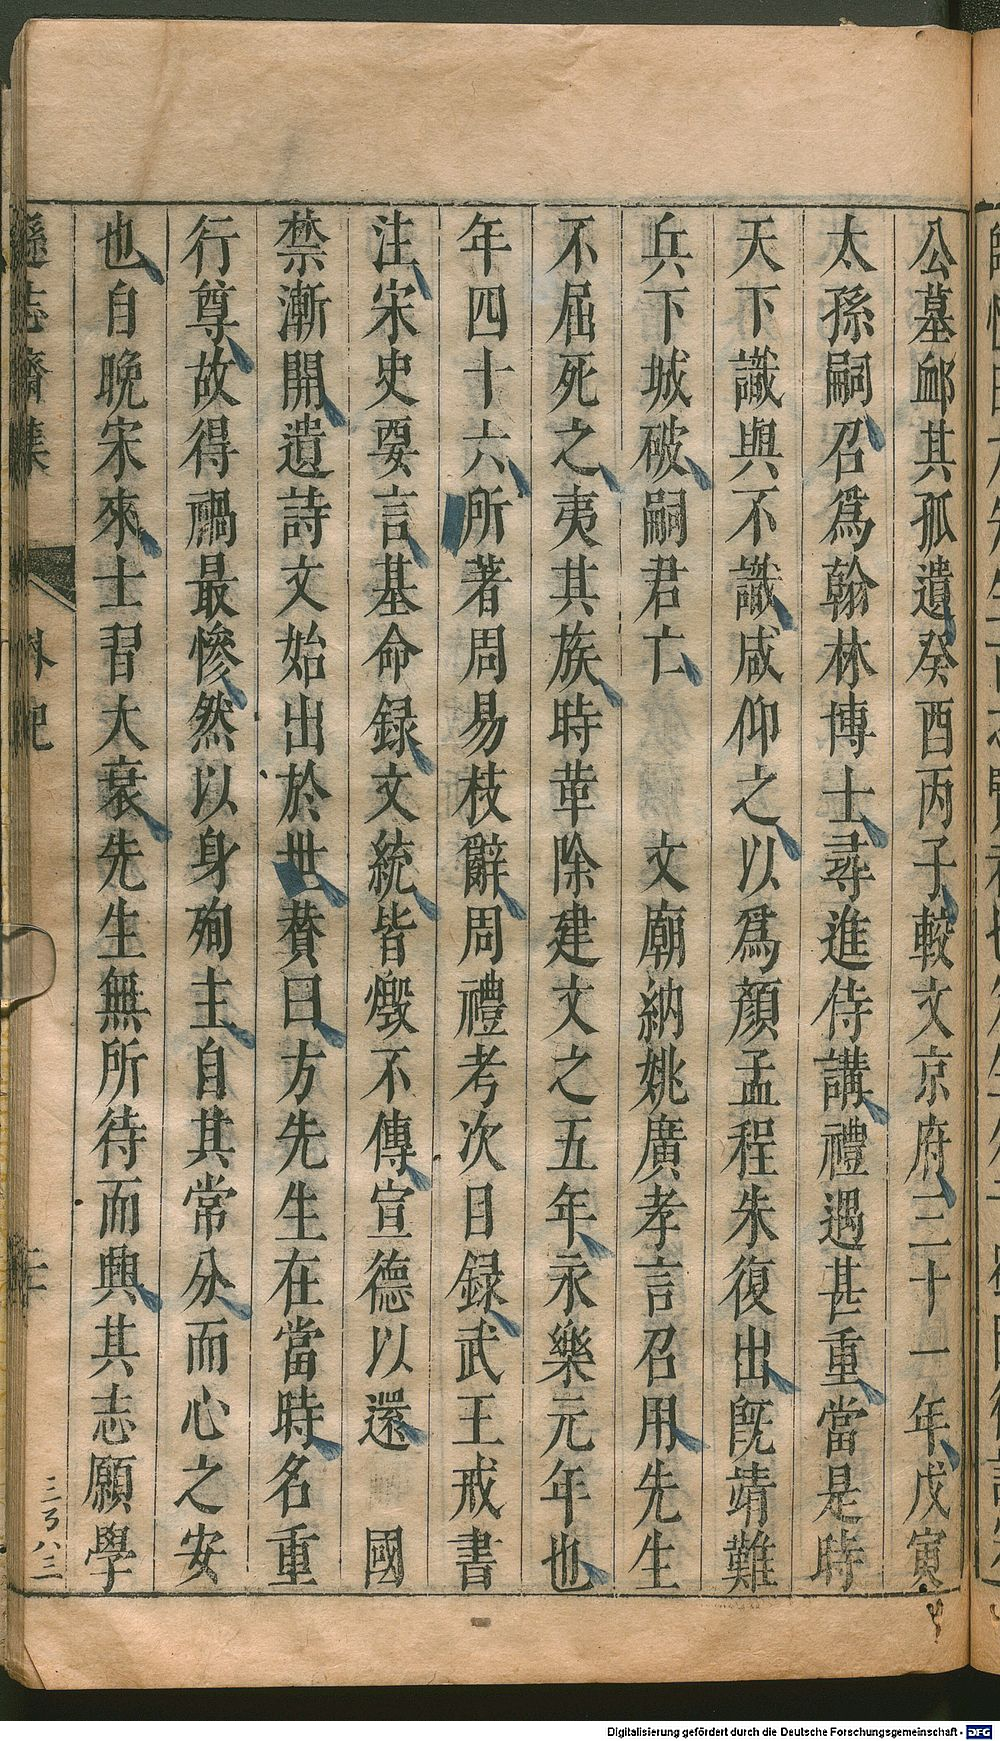 公墓䘏其孤遺癸酉丙子較文京府三十一年戊寅
太孫嗣召爲翰林博士尋進侍講禮遇甚重當是時
天下識與不識咸仰之以爲顏孟程朱復出旣靖難
兵下城破嗣君亡　文廟納姚廣孝言召用先生
不屈死之夷其族時革除建文之五年永樂元年也
年四十六所著周易枝辭周禮考次目録武王戒書
注宋史要言基命録文統皆燬不傳宣德以還　國
禁漸開遺詩文始出於世賛曰方先生在當時名重
行尊故得禍最慘然以身殉主自其常分而心之安
也自晚宋來士習大衰先生無所待而興其志願學
遜志齋集　外紀
Digitalisierung gefördert durch die Deutsche Forschungsgemeinschaft - DFG